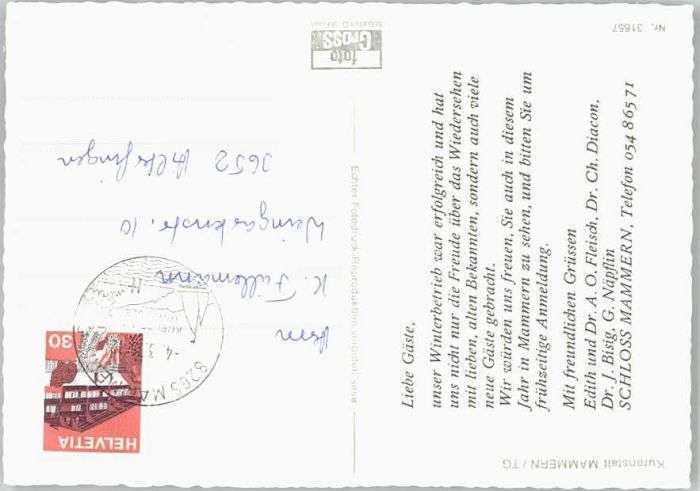 Kuranstalt MAMMERN / TG
Liebe Gäste,
unser Winterbetrieb war erfolgreich und hat
uns nicht nur die Freude über das Wiedersehen
mit lieben, alten Bekannten, sondern auch viele
neue Gäste gebracht.
Wir würden uns freuen, Sie auch in diesem
Jahr in Mammern zu sehen, und bitten Sie um
frühzeitige Anmeldung.
Mit freundlichen Grüssen
Edith und Dr. A. O. Fleisch, Dr. Ch. Diacon,
Dr. J. Bisig, G. Näpflin
SCHLOSS MAMMERN, Telefon 054 8 65 71
Nr. 31657
foto
GROSS
Echter Fotodruck-Reproduktion
HELVETIA
30
8265 MA
-4.3.
Herrn
K. Füllemann
10
3652 Hilterfingen